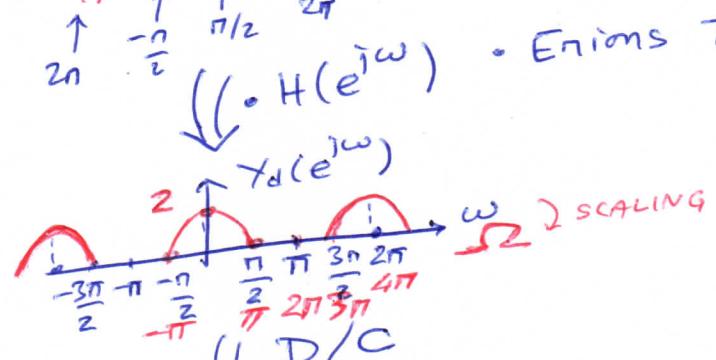 2π -π/2 π/2 2π
· H(e^{jω}) · Enions
Y_d(e^{jω})
2
ω
Ω SCALING
-3π/2 -π -π/2 π/2 π 3π/2 2π
-π π 2π 3π 4π
D/C